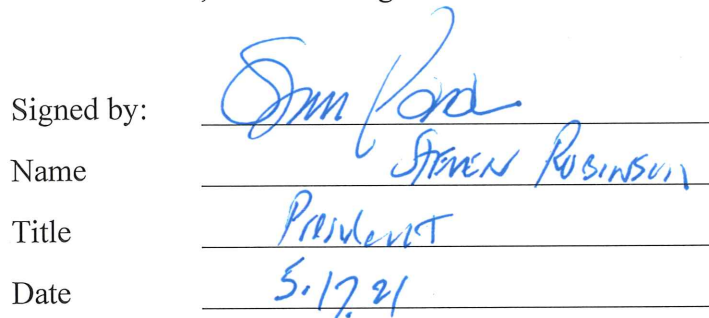 Signed by:
Name STEVEN ROBINSON
Title President
Date 5.17.21